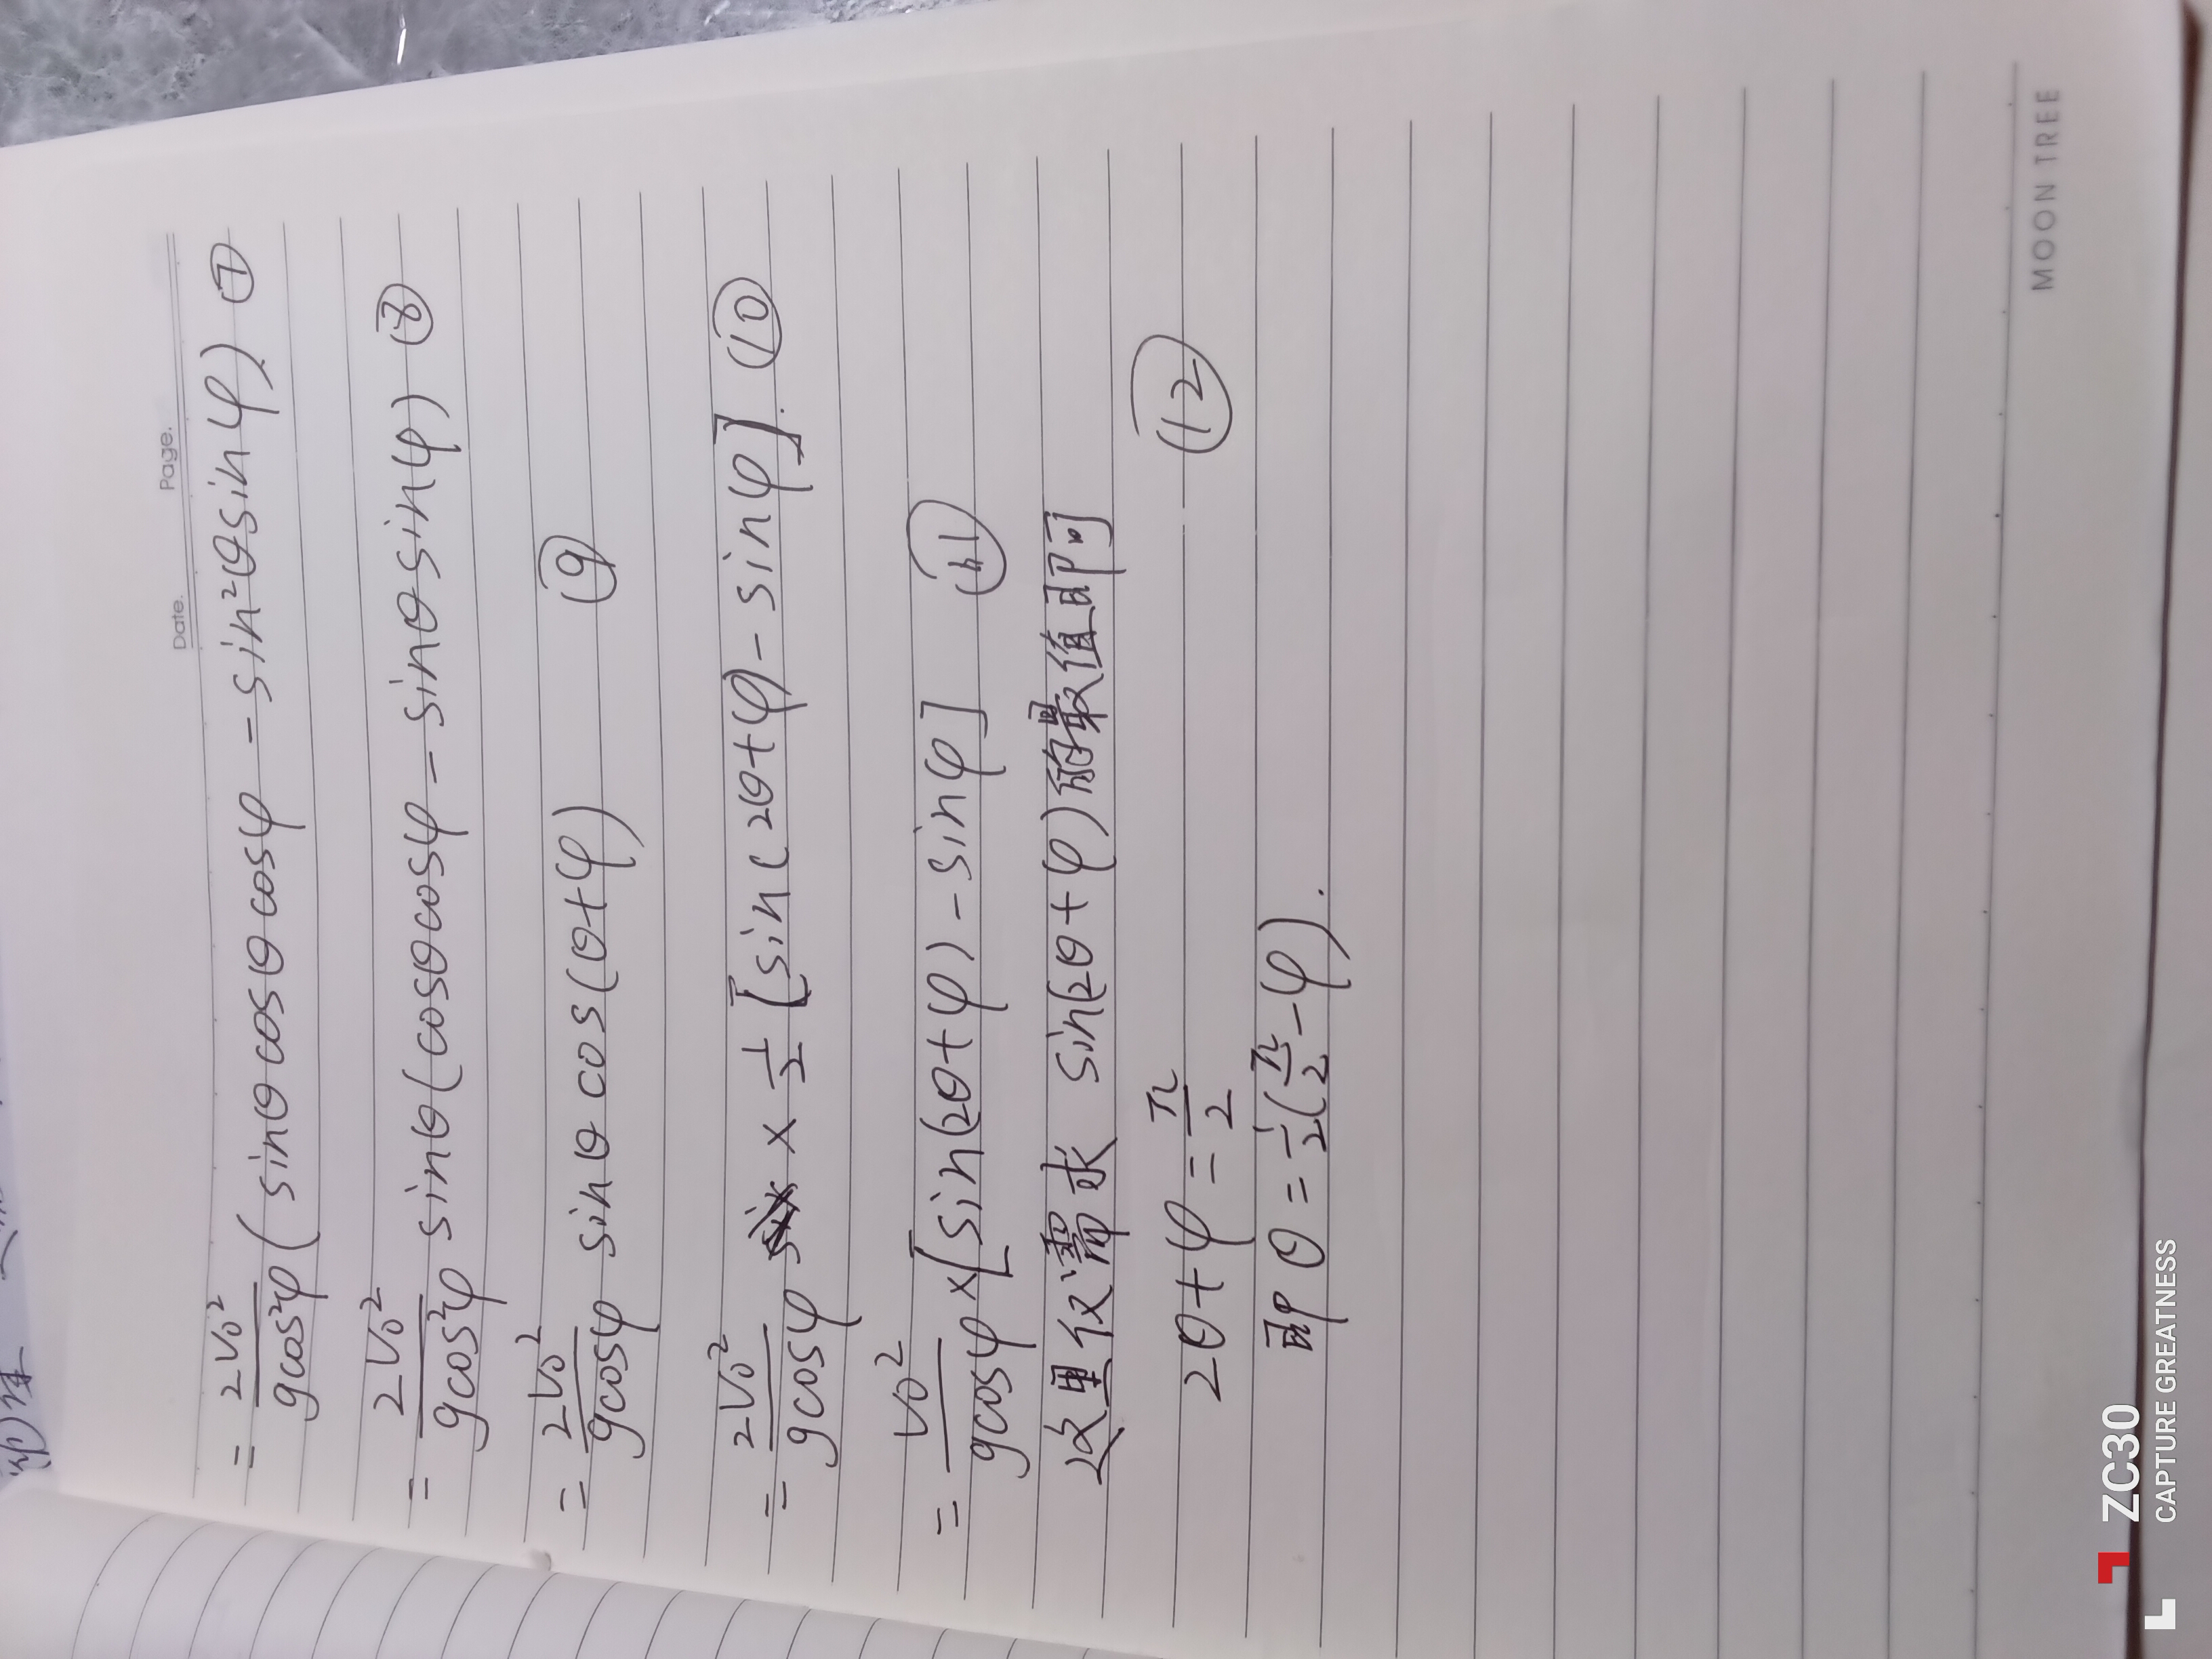 Date. Page.
= \frac{2V_0^2}{gcos^2φ} (sinθcosθcosφ - sin^2θsinφ) ⑦
= \frac{2V_0^2}{gcos^2φ} sinθ(cosθcosφ - sinθsinφ) ⑧
= \frac{2V_0^2}{gcosφ} sinθcos(θ+φ) ⑨
= \frac{2V_0^2}{gcosφ} × \frac{1}{2} [sin(2θ+φ) - sinφ]. ⑩
= \frac{V_0^2}{gcosφ} × [sin(2θ+φ) - sinφ]
这里仅需求 sin(2θ+φ)的最值即可
2θ+φ = \frac{π}{2} ⑫
即 θ = \frac{1}{2}(\frac{π}{2} - φ).
MOON TREE
ZC30
CAPTURE GREATNESS